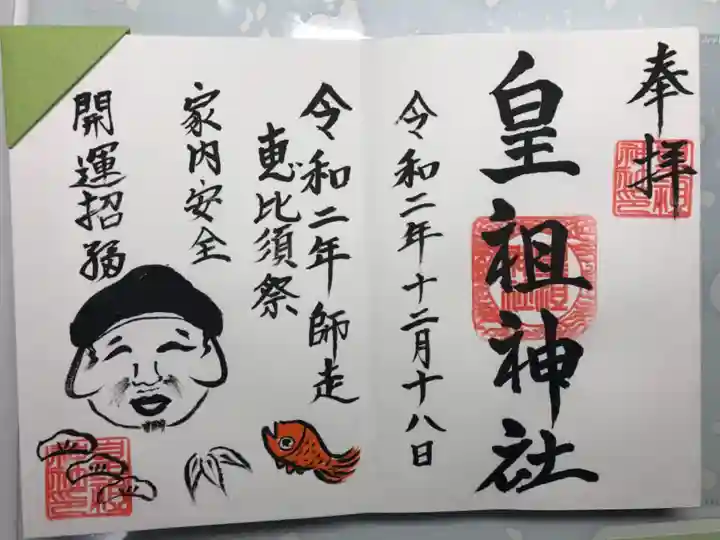 奉拝
皇祖神社
令和二年十二月十八日
令和二年師走
恵比須祭
家内安全
開運招福